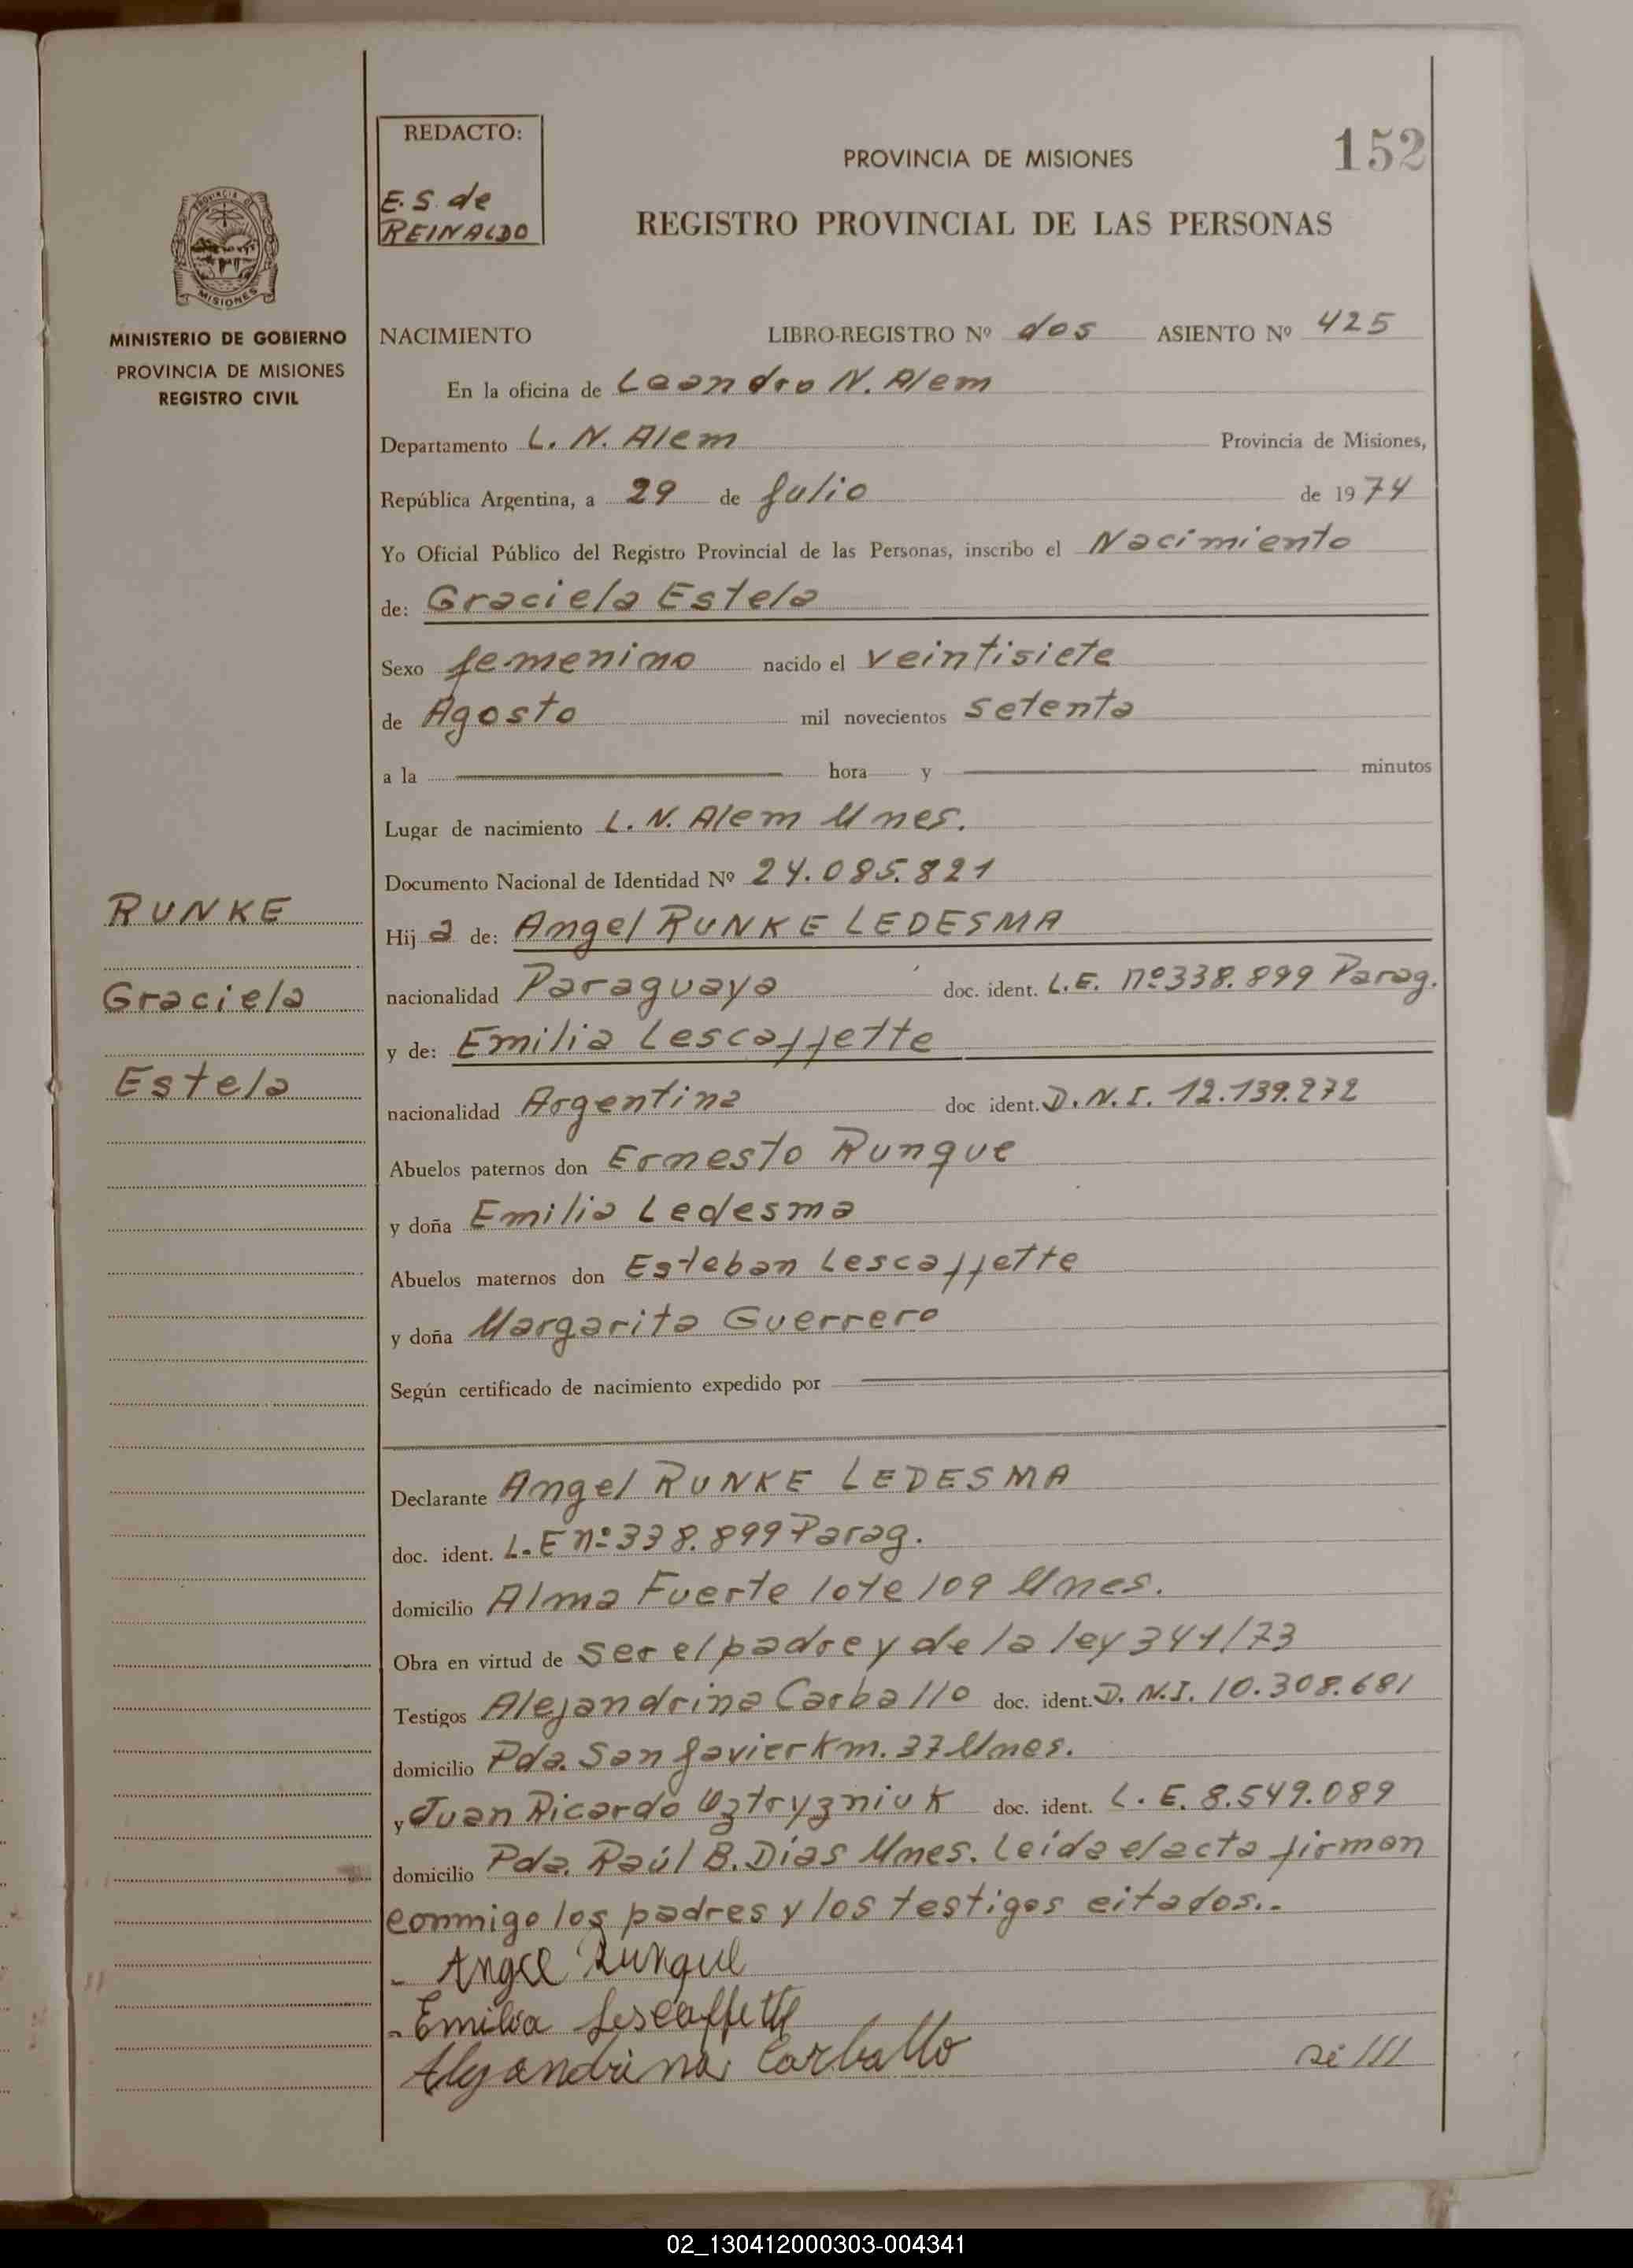 REDACTO:
E. S. de
REINALDO
152
PROVINCIA DE MISIONES
REGISTRO PROVINCIAL DE LAS PERSONAS
PROVINCIA DE
MISIONES
MINISTERIO DE GOBIERNO
PROVINCIA DE MISIONES
REGISTRO CIVIL
NACIMIENTO LIBRO-REGISTRO Nº dos ASIENTO Nº 425
En la oficina de Leandro N. Alem
Departamento L. N. Alem Provincia de Misiones,
República Argentina, a 29 de Julio de 1974
Yo Oficial Público del Registro Provincial de las Personas, inscribo el Nacimiento
de: Graciela Estela
Sexo femenino nacido el veintisiete
de Agosto mil novecientos setenta
a la hora y minutos
Lugar de nacimiento L. N. Alem Mnes.
Documento Nacional de Identidad Nº 24.085.821
RUNKE
Graciela
Estela
Hija de: Angel RUNKE LEDESMA
nacionalidad Paraguaya doc. ident. L.E. nº 338.899 Parag.
y de: Emilia Lescaffette
nacionalidad Argentina doc ident. D.N.I. 12.139.272
Abuelos paternos don Ernesto Runque
y doña Emilia Ledesma
Abuelos maternos don Esteban Lescaffette
y doña Margarita Guerrero
Según certificado de nacimiento expedido por
Declarante Angel RUNKE LEDESMA
doc. ident. L.E nº 338.899 Parag.
domicilio Alma Fuerte lote 109 Mnes.
Obra en virtud de ser el padre y de la ley 341/73
Testigos Alejandrina Carballo doc. ident. D.N.I. 10.308.681
domicilio Pda. San Javier Km. 37 Mnes.
y Juan Ricardo doc. ident. L. E. 8.549.089
domicilio Pda. Raúl B. Días Mnes. Leída el acta firman
conmigo los padres y los testigos citados..
- Angel Runque
- Emilia Lescaffette
Alejandrina Carballo si ///
02_130412000303-004341